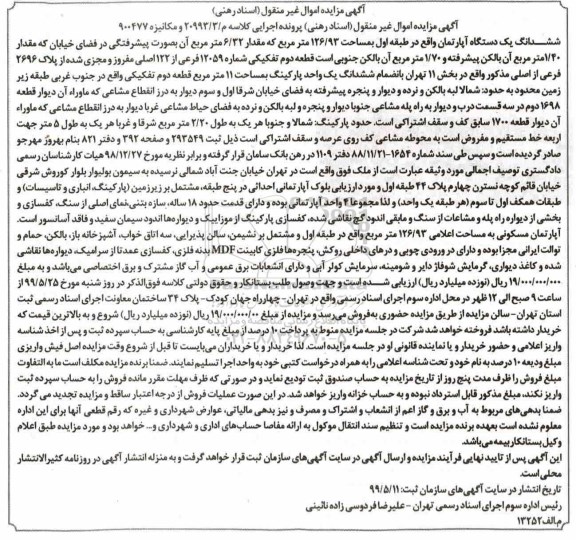 آگهی مزایده اموال غیر منقول (اسناد رهنی)
آگهی مزایده اموال غیر منقول (اسناد رهنی) پرونده اجرایی کلاسه م/۲۰۹۹۳/۳ و مکانیزه ۹۰۰۴۷۷
ششدانگ یک دستگاه آپارتمان واقع در طبقه اول بمساحت ۱۲۶/۹۳ متر مربع که مقدار ۶/۳۲ متر مربع آن بصورت پیشرفتگی در فضای خیابان که مقدار
۱/۴۰متر مربع آن بالکن پیشرفته و ۱/۷۰ متر مربع آن بالکن جنوبی است قطعه دوم تفکیکی شماره ۱۲۰۵۹ فرعی از ۱۲۲اصلی مفروز و مجزی شده از پلاک ۲۶۹۶
فرعی از اصلی مذکور واقع در بخش ۱۱ تهران بانضمام ششدانگ یک واحد پارکینگ بمساحت ۱۱ متر مربع قطعه دوم تفکیکی واقع در جنوب غربی طبقه زیر
زمین محدود به حدود: شمالا لبه بالکن و نرده و دیوار و پنجره پیشرفته به فضای خیابان شرقا اول و سوم دیوار به درز انقطاع مشاعی که ماوراء آن دیوار قطعه
۱۶۹۸ دوم در سه قسمت درب و دیوار به راه پله مشاعی جنوبا دیوار و پنجره و لبه بالکن و نرده به فضای حیاط مشاعی غربا دیوار به درز انقطاع مشاعی که ماوراء
آن دیوار قطعه ۱۷۰۰ سابق کف و سقف اشتراکی است. حدود پارکینگ: شمالا و جنوبا هر یک به طول ۲/۲۰ متر مربع شرقا و غربا هر یک به طول ۵ متر جهت
اربعه خط مستقیم و مفروض است به محوطه مشاعی کف روی عرصه و سقف اشتراکی است ذیل ثبت ۲۹۳۵۴۹ و صفحه ۳۹۲ و دفتر ۸۲۱ بنام بهروز مهرجو
صادر گردیده است و سپس طی سند شماره ۱۶۵۴-۸۸/۱۱/۲۱ دفتر ۱۱۰۹ در رهن بانک سامان قرار گرفته و برابر نظریه مورخ ۹۸/۱۲/۲۷ هیات کارشناسان رسمی
دادگستری توصیف اجمالی مورد وثیقه عبارت است از ملک فوق واقع است در تهران خیابان جنت آباد شمالی نرسیده به سیمون بولیوار بلوار کوروش شرقی
خیابان قائم کوچه نسترن چهارم پلاک ۴۴ طبقه اول و مورد ارزیابی بلوک آپارتمانی احداثی در پنج طبقه، مشتمل بر زیرزمین (پارکینگ، انباری و تاسیسات) و
طبقات همکف اول تا سوم (هر طبقه یک واحد) و لذا مجموعا ۴ واحد آپارتمانی بوده و دارای قدمت حدود ۱۸ ساله، سازه بتنی، نمای اصلی از سنگ، کفسازی و
بخشی از دیواره راه پله و مشاعات از سنگ و مابقی اندود گچ نقاشی شده، کفسازی پارکینگ از موزاییک و دیوارها اندود سیمان سفید و فاقد آسانسور است.
آپارتمان مسکونی به مساحت اعلامی ۱۲۶/۹۳ متر مربع واقع در طبقه اول و مشتمل بر نشیمن، سالن پذیرایی، سه اتاق خواب، آشپزخانه باز، بالکن، حمام و
توالت ایرانی مجزا بوده و دارای در ورودی چوبی و درهای داخلی روکش، پنجره ها فلزی کابینت MDF بدنه فلزی، کفسازی عمدتا از سرامیک، دیوارها نقاشی
شده و کاغذ دیواری، گرمایش شوفاژ دایر و شومینه، سرمایش کولر آبی و دارای انشعابات برق عمومی و آب گاز مشترک و برق اختصاصی می‌باشد و به مبلغ
۱۹/۰۰۰/۰۰۰/۰۰۰ ریال (نوزده میلیارد ریال) ارزیابی شده است و جهت وصول طلب بستانکار و حقوق دولتی کلاسه فوق الذکر در روز شنبه مورخ ۹۹/۵/۲۵ از
ساعت ۹ صبح الی ۱۲ ظهر در محل اداره سوم اجرای اسناد رسمی واقع در تهران- چهارراه جهان کودک- پلاک ۳۴ ساختمان معاونت اجرای اسناد رسمی ثبت
استان تهران- سالن مزایده از طریق مزایده حضوری به فروش می‌رسد و مزایده از مبلغ ۱۹/۰۰۰/۰۰۰/۰۰۰ ریال (نوزده میلیارد ریال) شروع و به بالاترین قیمت که
خریدار داشته باشد فروخته خواهد شد شرکت در جلسه مزایده منوط به پرداخت ۱۰ درصد از مبلغ پایه کارشناسی به حساب سپرده ثبت و پس از اخذ شناسه
واریز اعلامی و حضور خریدار و یا نماینده قانونی او در جلسه مزایده است. لذا خریدار و یا خریداران می‌بایست تا قبل از شروع وقت مزایده اصل فیش واریزی
مبلغ ودیعه ۱۰ درصد به نام خود و تحت شناسه اعلامی را به همراه درخواست کتبی خود به واحد اجرا تسلیم نمایند. ضمنا برنده مزایده مکلف است ما به التفاوت
مبلغ فروش را ظرف مدت پنج روز از تاریخ مزایده به حساب صندوق ثبت تودیع نماید و در صورتی که ظرف مهلت مقرر مانده فروش را به حساب سپرده ثبت
واریز نکند، مبلغ مذکور قابل استرداد نبوده و به حساب خزانه واریز خواهد شد. در این صورت عملیات فروش از درجه اعتبار ساقط و مزایده تجدید می گردد.
ضمنا بدهی‌های مربوط به آب و برق و گاز اعم از انشعاب و اشتراک و مصرف و نیز بدهی مالیاتی، عوارض شهرداری و غیره که رقم قطعی آنها برای این اداره
معلوم نشده است بعهده برنده مزایده است و تنظیم سند انتقال موکول به ارائه مفاصا حساب‌های اداری و شهرداری و... خواهد بود و مورد مزایده طبق اعلام
وکیل بستانکار بیمه می‌باشد.
این آگهی پس از تایید نهایی فرآیند مزایده و ارسال آگهی در سایت آگهی‌های سازمان ثبت قرار خواهد گرفت و به منزله انتشار آگهی در روزنامه کثیرالانتشار
محلی است.
تاریخ انتشار در سایت آگهی‌های سازمان ثبت: ۹۹/۵/۱۱
رئیس اداره سوم اجرای اسناد رسمی تهران - علیرضا فردوسی زاده نائینی
م.الف ۱۳۲۵۲